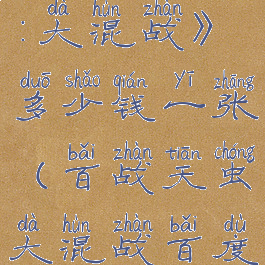 dà hùn zhàn
:大混战》
duō shǎo qián yī zhāng
多少钱一张
bǎi zhàn tiān chóng
(百战天虫
dà hùn zhàn bǎi dù
大混战百度